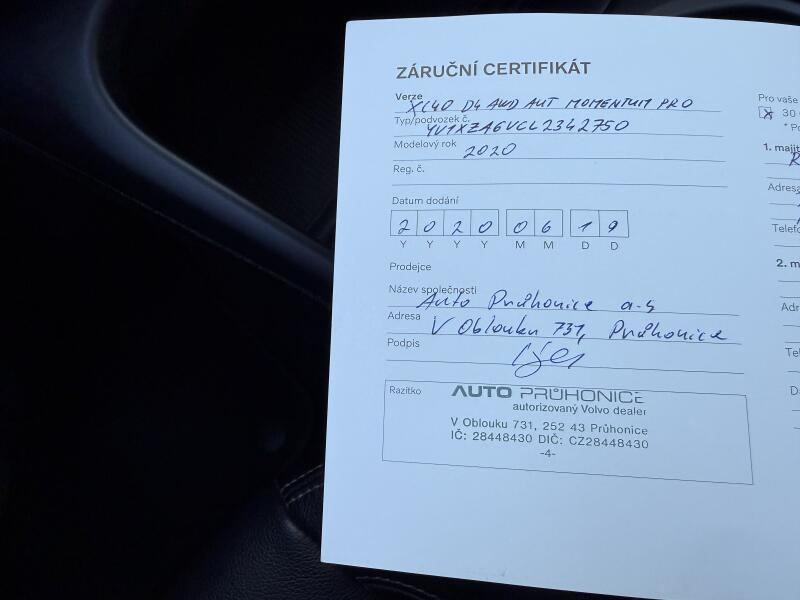 ZÁRUČNÍ CERTIFIKÁT
Verze
XC40 D4 AWD AUT MOMENTUM PRO
Typ/podvozek č.
YV1XZA6VCL2342750
Modelový rok
2020
Reg. č.
Datum dodání
2 0 2 0 0 6 1 9
Y Y Y Y M M D D
Prodejce
Název společnosti
Auto Průhonice a.s
Adresa
V Oblouku 731, Průhonice
Podpis
Razítko
AUTO PRŮHONICE
autorizovaný Volvo dealer
V Oblouku 731, 252 43 Průhonice
IČ: 28448430 DIČ: CZ28448430
-4-
Pro vaše
30
* Po
1. majit
R
Adresa
Telefo
2. m
Adr
Te